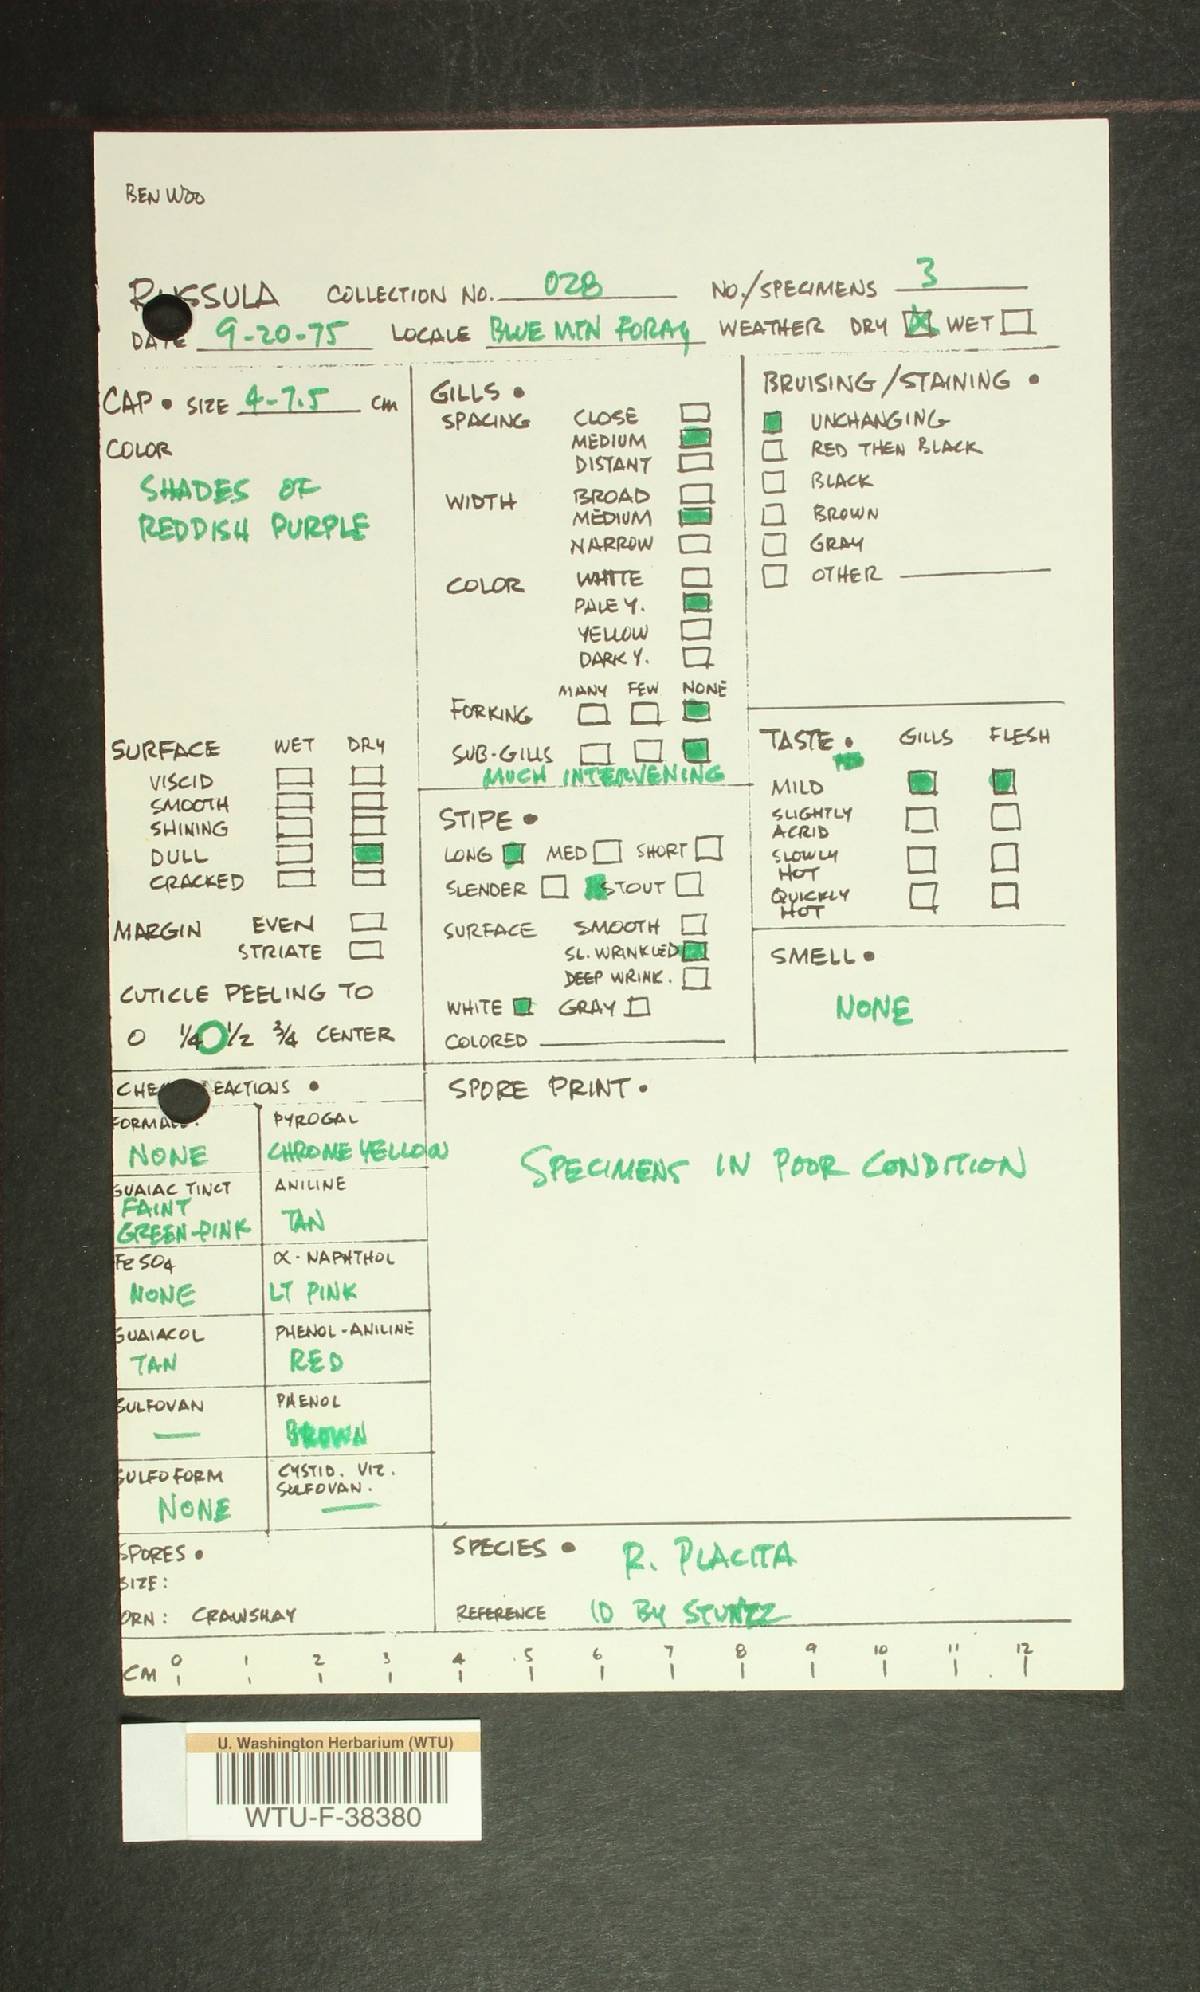 BEN WOO
RUSSULA COLLECTION NO. 028 NO./SPECIMENS 3
DATE 9-20-75 LOCALE BLUE MTN FORAY WEATHER DRY WET
CAP • SIZE 4-7.5 CM
COLOR
SHADES OF
REDDISH PURPLE
SURFACE WET DRY
VISCID
SMOOTH
SHINING
DULL
CRACKED
MARGIN EVEN
STRIATE
CUTICLE PEELING TO
0 1/4 1/2 3/4 CENTER
GILLS •
SPACING CLOSE
MEDIUM
DISTANT
WIDTH BROAD
MEDIUM
NARROW
COLOR WHITE
PALE Y.
YELLOW
DARK Y.
MANY FEW NONE
FORKING
SUB-GILLS
MUCH INTERVENING
STIPE •
LONG MED SHORT
SLENDER STOUT
SURFACE SMOOTH
SL. WRINKLED
DEEP WRINK.
WHITE GRAY
COLORED
BRUISING/STAINING •
UNCHANGING
RED THEN BLACK
BLACK
BROWN
GRAY
OTHER
TASTE • GILLS FLESH
MILD
SLIGHTLY
ACRID
SLOWLY
HOT
QUICKLY
HOT
SMELL •
NONE
CHE EACTIONS •
FORMAL.
NONE
PYROGAL
CHROME YELLOW
GUAIAC TINCT
FAINT
GREEN-PINK
ANILINE
TAN
FE SO4
NONE
α-NAPHTHOL
LT PINK
GUAIACOL
TAN
PHENOL-ANILINE
RED
SULFOVAN
—
PHENOL
BROWN
SULFOFORM
NONE
CYSTID. VIZ.
SULFOVAN.
—
SPORE PRINT •
SPECIMENS IN POOR CONDITION
SPORES •
SIZE:
ORN: CRAWSHAY
SPECIES • R. PLACITA
REFERENCE ID BY STUNTZ
CM 0 1 2 3 4 5 6 7 8 9 10 11 12
U. Washington Herbarium (WTU)
WTU-F-38380